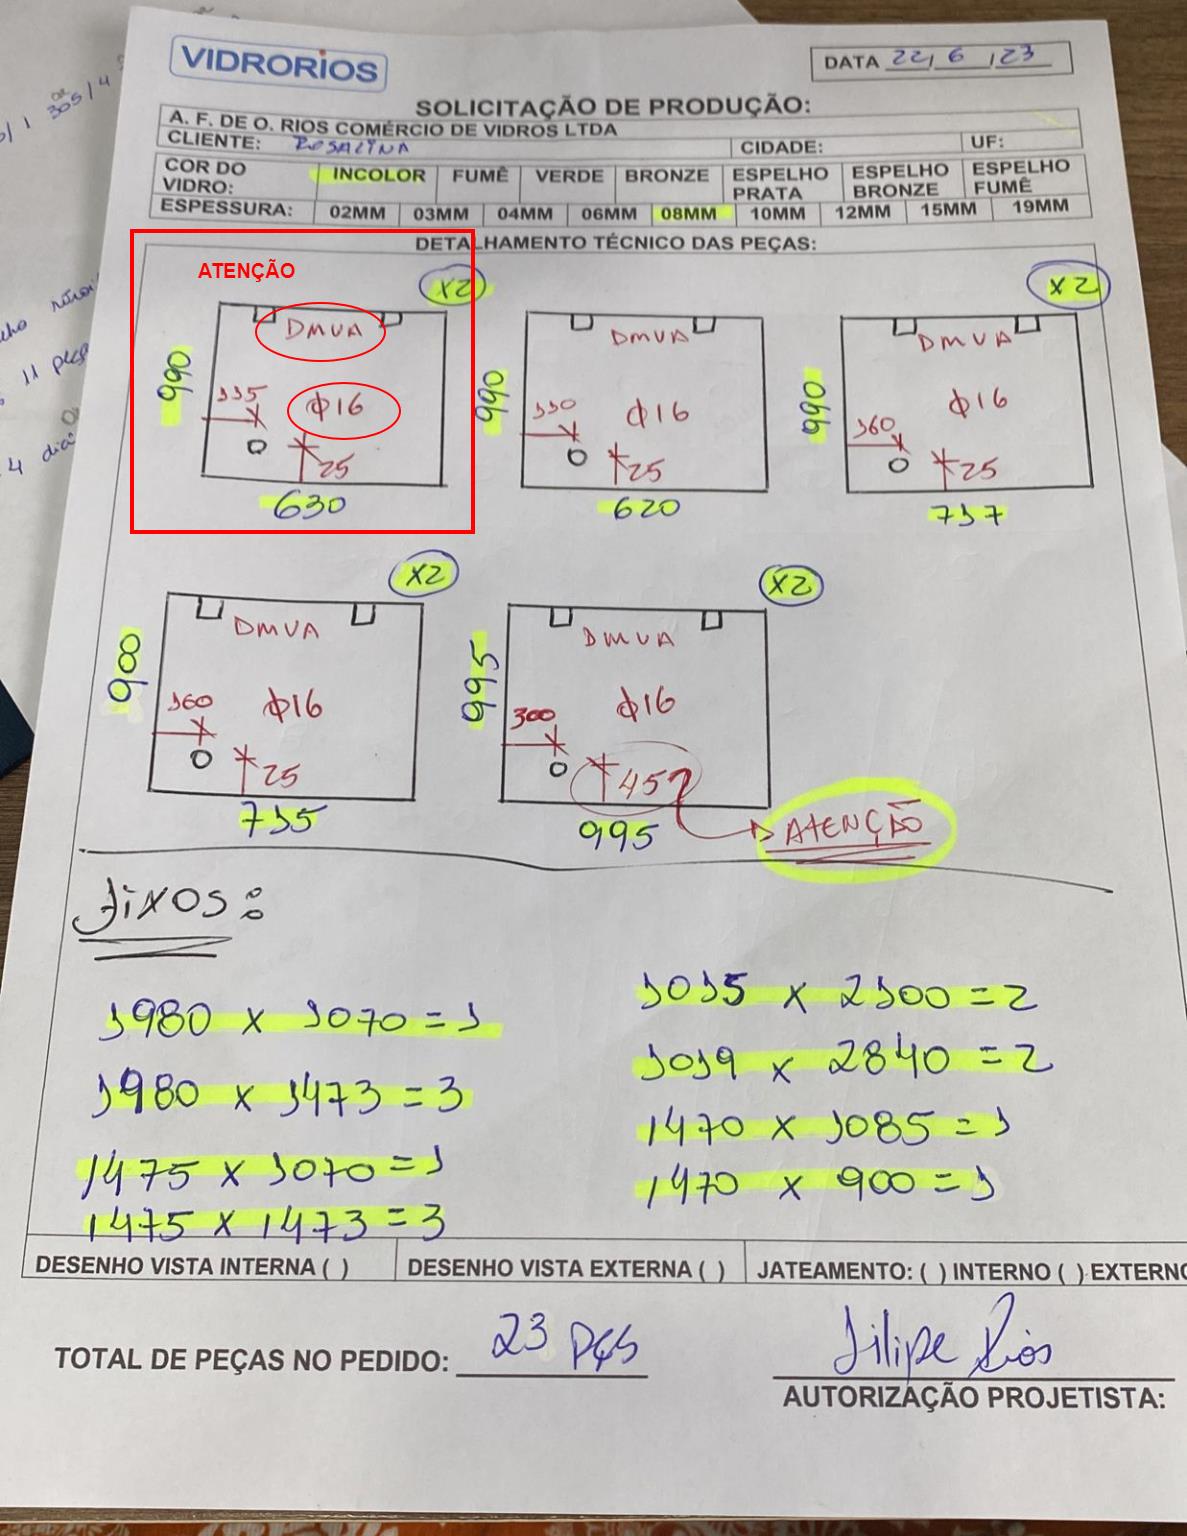 VIDRORIOS
DATA 22/6/23
SOLICITAÇÃO DE PRODUÇÃO:
A. F. DE O. RIOS COMÉRCIO DE VIDROS LTDA
CLIENTE: ROSALINA CIDADE: UF:
COR DO VIDRO: INCOLOR FUMÊ VERDE BRONZE ESPELHO PRATA ESPELHO BRONZE ESPELHO FUMÊ
ESPESSURA: 02MM 03MM 04MM 06MM 08MM 10MM 12MM 15MM 19MM
DETALHAMENTO TÉCNICO DAS PEÇAS:
ATENÇÃO
X2
DMVA
990
115
ϕ16
25
630
DMVA
990
110
ϕ16
25
620
X2
DMVA
990
160
ϕ16
25
717
X2
DMVA
900
160
ϕ16
25
715
X2
DMVA
995
300
ϕ16
45
995
ATENÇÃO
Fixos:
1980 x 1070 = 1
1980 x 1473 = 3
1475 x 1070 = 1
1475 x 1473 = 3
1015 x 2100 = 2
1019 x 2840 = 2
1470 x 1085 = 1
1470 x 900 = 1
DESENHO VISTA INTERNA ( ) DESENHO VISTA EXTERNA ( ) JATEAMENTO: ( ) INTERNO ( ) EXTERNO
TOTAL DE PEÇAS NO PEDIDO: 23 PÇS
Filipe Rios
AUTORIZAÇÃO PROJETISTA: